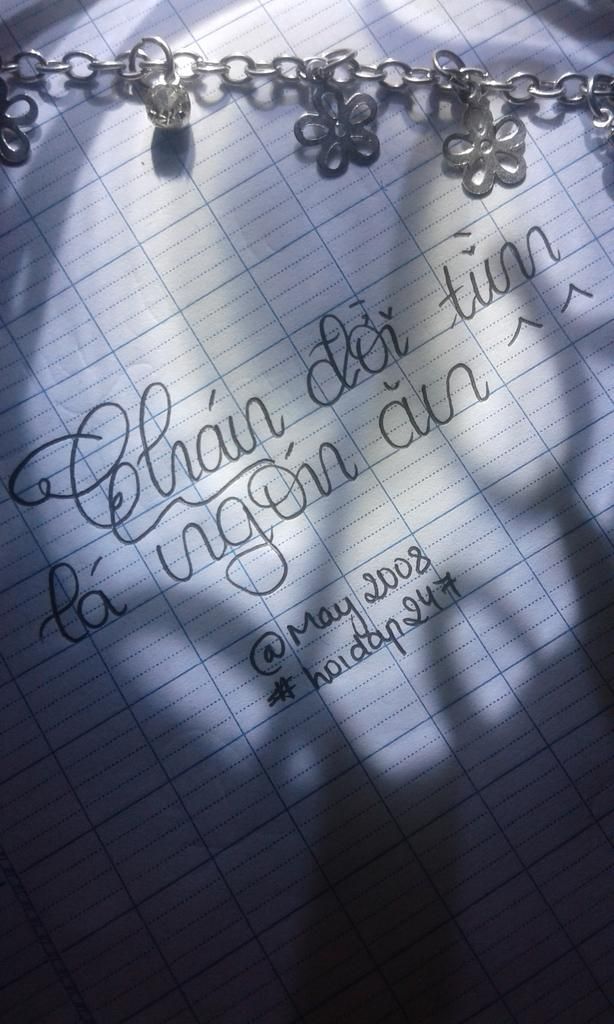 Chán đời tìm
lá ngón ăn ^ ^
@May2008
#hoidap247